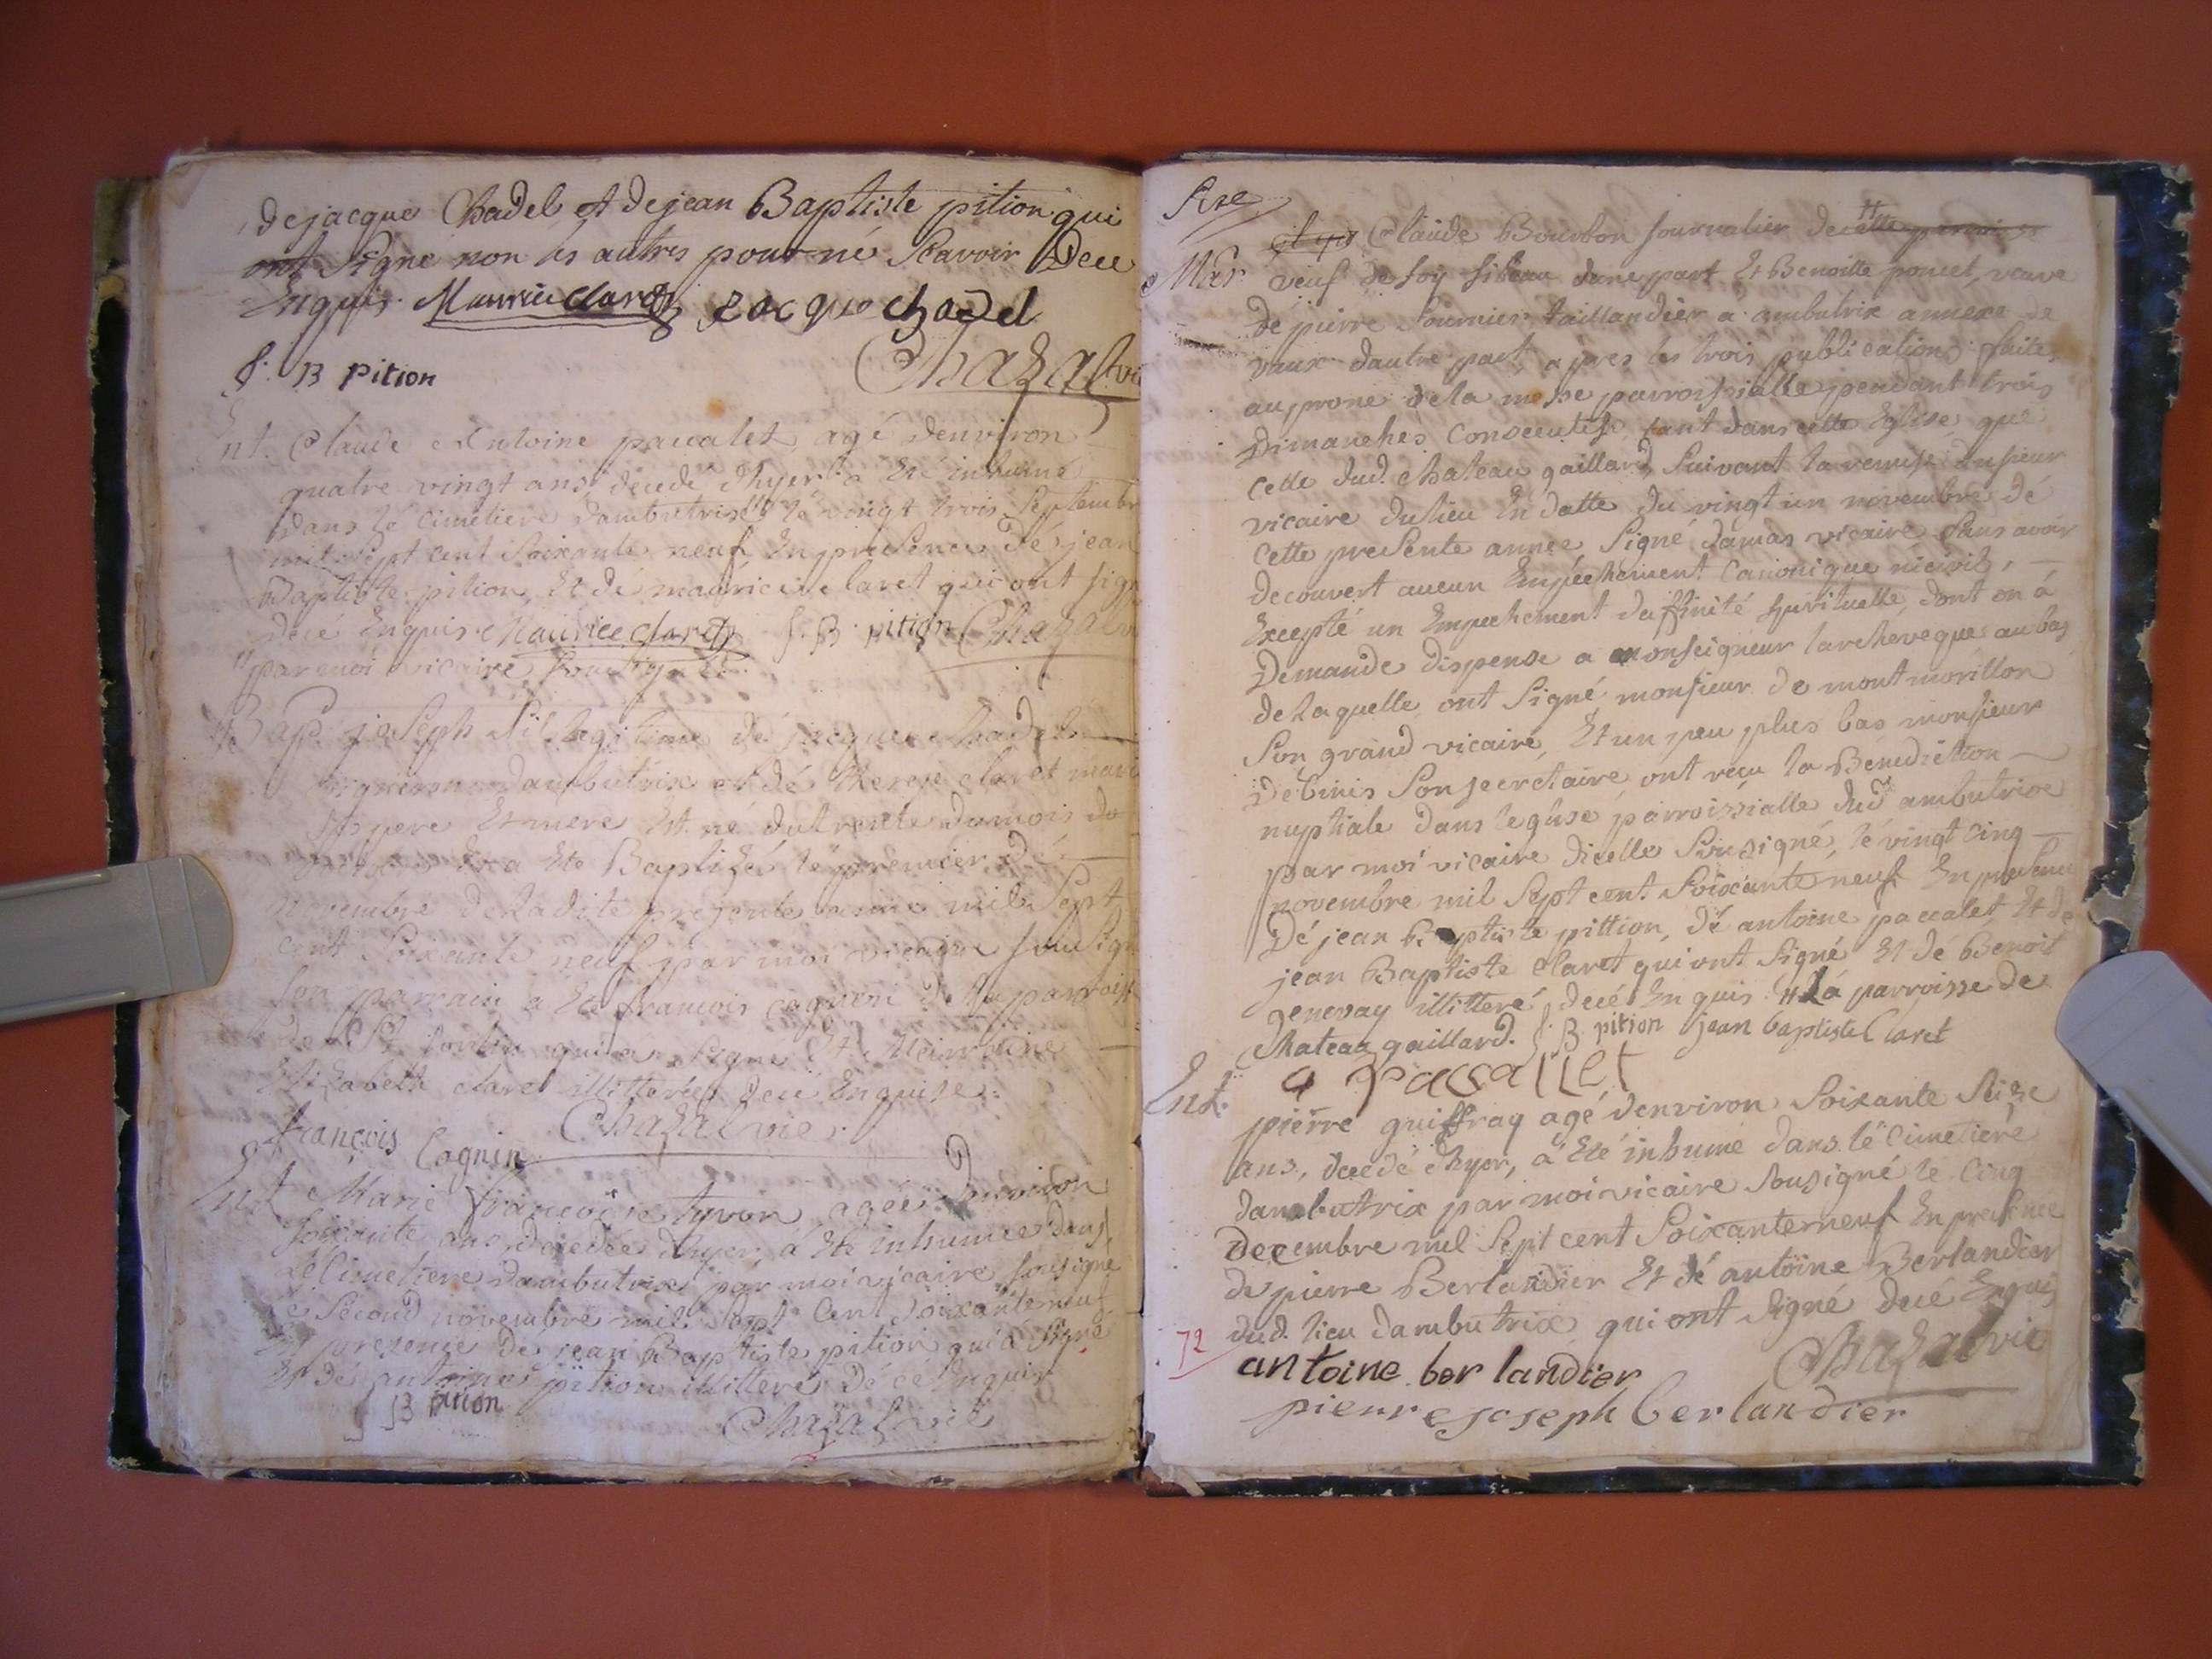 de jacque Chadel et de jean Baptiste pition qui
ont signé non les autres pour ne Scavoir Dece
Enquis. Maurice claret jacque chadel
J. B pition Chazal vic
Ent. Claude Antoine paccalet agé denviron
quatre vingt ans, decedé dhyer a Eté inhumé
dans le Cimetiere dambutrix le vingt trois Septembre
mil Sept cent Soixante neuf En presence de jean
Baptiste pition Et dé maurice claret qui ont signé
decé Enquis Maurice claret J. B. pition Chazal v
par moi vicaire soussigné
Bap. joseph fil legitime dé jacque chadel
vigneron dambutrix et dé therese claret mariés
ses pere Et mere Est né du trente du mois do
octobre Et a Eté Baptizé le premier dé
novembre de ladite presente année mil Sept
cent Soixante neuf par moi vicaire soussigné
son parrain a Eté francois cagnin de la parroisse
de St qui a signé Et marraine
Elizabeth claret illitterée decé Enquise.
françois Cagnin Chazal vic.
Ent Marie françoise agée denviron
soixante ans decedée dhyer, a Eté inhumée dans
Lé Cimetiere dambutrix par moi vicaire sousigné
le Second novembre mil Sept Cent Soixante neuf
En presence de jean Baptiste pition qui a signé
Et dé antoine pition illitteré dé cé Enquis
J B pition
Chazal vic
Claude Bourbon journalier de cette parroisse
Mar veuf de part Et Benoitte poncet, veuve
dé pierre fournier taillandier a ambutrix annexe de
vaux dautre part, apres les trois publications faites
au prone de la messe parroissialle pendant trois
Dimanches Consecutifs, tant dans cette Eglise que
Celle dud. chateau gaillard, Suivant la remise du sieur
vicaire du lieu En datte du vingt un novembre dé
Cette presente année Signé damas vicaire sans avoir
decouvert aucun Empechement Canonique ni civil,
Excepté un Empechement daffinité spirituelle, dont on a
Demandé dispense a monseigneur larcheveque au bas
de laquelle ont Signé monsieur de montmorillon
Son grand vicaire, Et un peu plus bas monsieur
Son secretaire, ont reçu la Benediction
nuptiale dans leglise parroissialle dud ambutrix
par moi vicaire dicelle Sousigné, le vingt cinq
novembre mil Sept cent Soixante neuf En presence
Dé jean baptiste pittion, dé antoine paccalet Et de
jean Baptiste Claret qui ont Signé Et dé Benoit
genevay illitteré decé Enquis. # La parroisse de
Chateau gaillard. J. B. pition jean baptiste Claret
a paccallet
Ent. pierre guiffray agé denviron Soixante Seize
ans, decedé dhyer, a Eté inhumé dans le Cimetiere
dambutrix par moi vicaire Sousigné le Cinq
Decembre mil Sept cent Soixante neuf En presence
de pierre Berlandier Et dé antoine Berlandier
dud. lieu dambutrix qui ont signé decé Enquis
72
antoine berlandier Chazal vic
pierre joseph berlandier